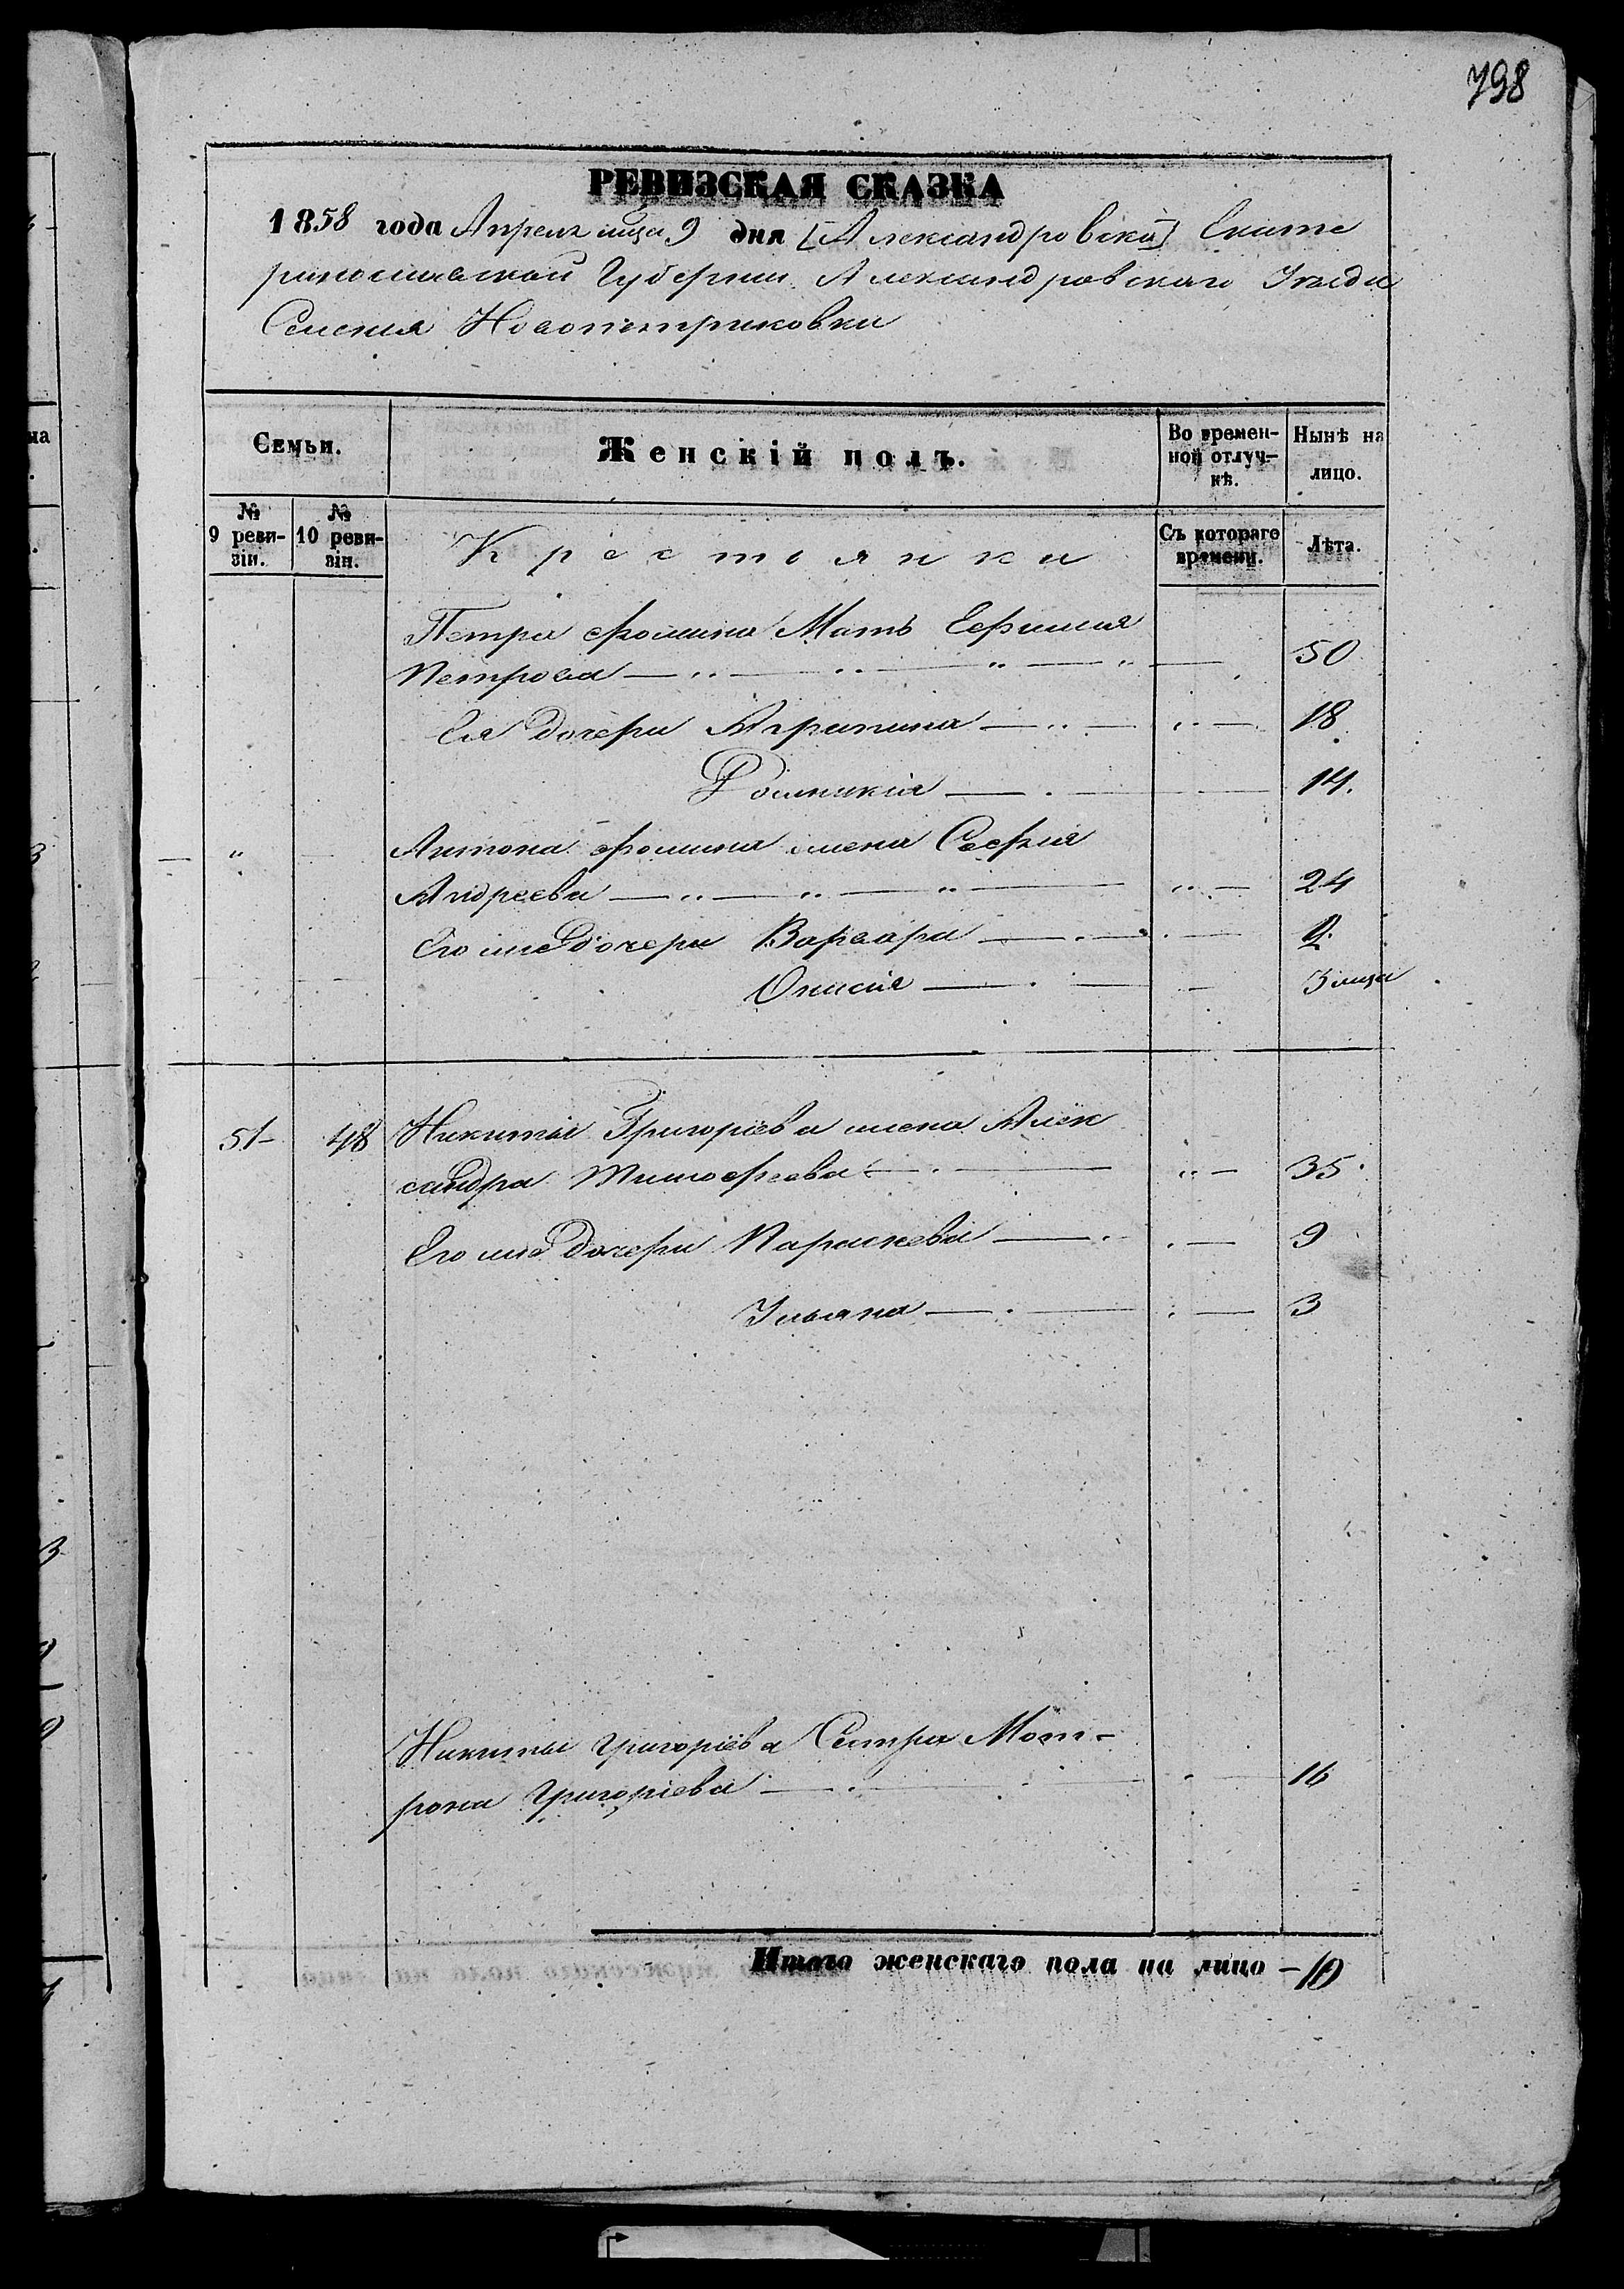 798
РЕВИЗСКАЯ СКАЗКА
1858 года Апреля мца 9 дня [Александровска] Екате
ринославской Губернии Александровскаго Уезда
Селения Новопетриковки
Семьи.
Женскій полъ.
Во времен-
ной отлуч-
кѣ.
Нынѣ на
лицо.
№
9 реви-
зіи.
№
10 реви-
зіи.
Крестьянки
Съ котораго
времени.
Лѣта.
Петра Фомина Мать Ефимия
Петрова 50
Ея дочери Агрипина 18
Домникія 14.
Антона Фомина жена Софія
Андреева 24
Его же дочери Варвара 2
Онисія 3 мца
51 48 Никиты Григоріева жена Алек
сандра Тимофеева 35
Его же дочери Параскева 9
Ульяна 3
Никиты Григоріева Сестра Мот-
рона Григоріева 16
Итого женскаго пола на лицо - 10